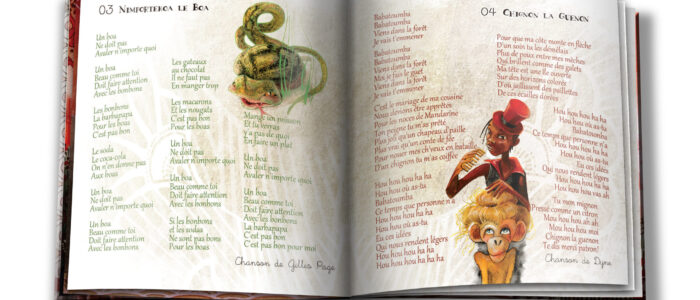 03 Nimporterkoa le Boa
Un boa
Ne doit pas
Avaler n'importe quoi
Un boa
Beau comme toi
Doit faire attention
Avec les bonbons
Les bonbons
La barbapapa
Pour les boas
C'est pas bon
Le soda
Le coca-cola
On n'en donne pas
Aux boas
Un boa
Ne doit pas
Avaler n'importe quoi
Un boa
Beau comme toi
Doit faire attention
Avec les bonbons
Les gateaux
au chocolat
Il ne faut pas
En manger trop
Les macarons
Et les nougats
C'est pas bon
Pour les boas
Un boa
Ne doit pas
Avaler n'importe quoi
Un boa
Beau comme toi
Doit faire attention
Avec les bonbons
Si les bonbons
et les sodas
Ne sont pas bons
Pour les boas
Mange un poisson
Et tu verras
y a pas de quoi
En faire un plat
Un boa
Ne doit pas
Avaler n'importe quoi
Un boa
Beau comme toi
Doit faire attention
Avec les bonbons
La barbapapa
C'est pas bon
C'est pas bon pour moi
Chanson de Gilles Page
Babatoumba
Babatoumba
Viens dans la forêt
Je vais t'emmener
Babatoumba
Babatoumba
Viens dans la forêt
Mis je fuis le guet
Viens dans la forêt
Je vais t'emmener
C'est le mariage de ma cousine
Nous devions être apprêtés
Pour les noces de Mandarine
Ton peigne tu m'as prêté
Plus joli qu'un chapeau d'paille
Pour nouer mes ch'veux en bataille
D'un chignon tu m'as coiffée
Hou hou hou ha ha
Hou hou oú as-tu
Babatoumba
Ce temps que personne n'a
Hou hou hou ha ha
Hou hou oú as-tu
Eu ces idées
Qui nous rendent légers
Hou hou hou ha ha
Hou hou hou ha ha
04 Chignon la Guenon
Pour que ma côte monte en flèche
D'un soin tu les démêlais
Plus de poux entre mes mèches
Qui brillent comme des galets
Ma tête est une île ouverte
Sur des horizons colorés
D'où jaillissent des paillettes
De ces étoiles dorées
Hou hou hou ha ha
Hou hou oú as-tu
Babatoumba
Ce temps que personne n'a
Hou hou hou ha ha
Hou hou oú as-tu
Eu ces idées
Qui nous rendent légers
Hou hou hou ha ha
Hou hou vas ah
Tu mon mignon
Pressé comme un citron
Mou hou ha ha
Chignon la guenon
Te dis merci patron!
Chanson de Dyne